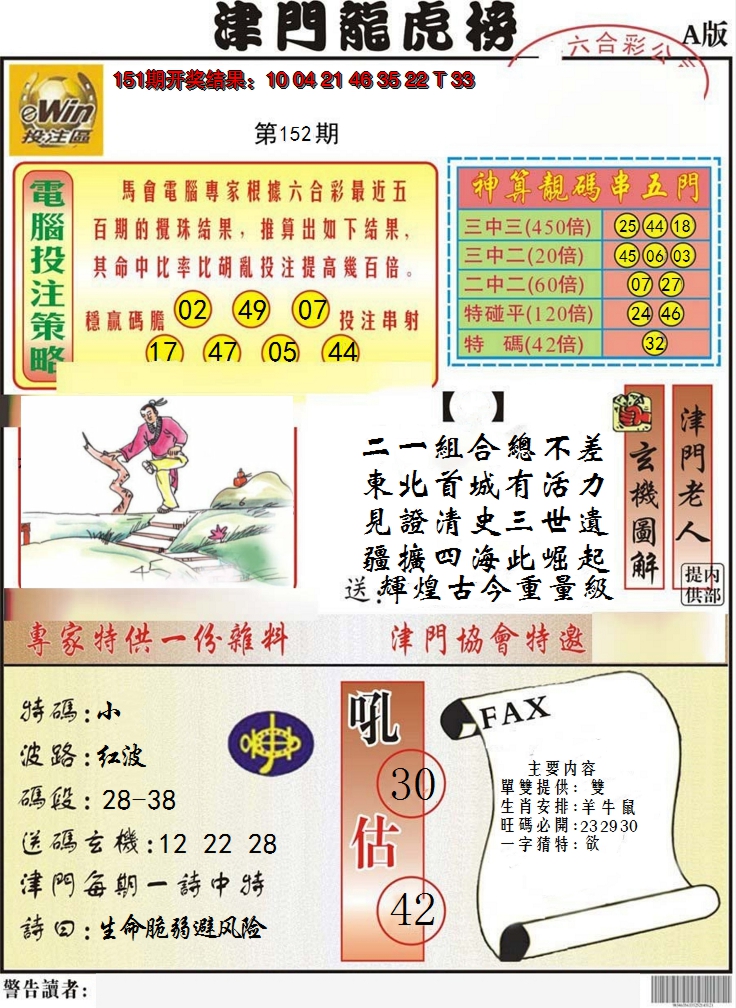 津門龍虎榜
A版
六合彩公司
151期开奖结果：10 04 21 46 35 22 T 33
eWin
投注區
第152期
電腦投注策略
馬會電腦專家根據六合彩最近五
百期的攪珠结果，推算出如下结果，
其命中比率比胡亂投注提高幾百倍。
穩贏碼膽 02 49 07 投注串射
17 47 05 44
神算靚碼串五門
三中三(450倍) 25 44 18
三中二(20倍) 45 06 03
二中二(60倍) 07 27
特碰平(120倍) 24 46
特 碼(42倍) 32
【 】
二一組合總不差
東北首城有活力
見證清史三世遺
疆擴四海此崛起
送:輝煌古今重量級
玄機圖解
津門老人
内部提供
專家特供一份雜料
津門協會特邀
特碼:小
波路:红波
碼段:28-38
送碼玄機:12 22 28
津門每期一詩中特
詩曰:生命脆弱避风险
吼
30
估
42
FAX
主要内容
單雙提供: 雙
生肖安排:羊牛鼠
旺碼必開:232930
一字猜特: 欲
警告讀者: